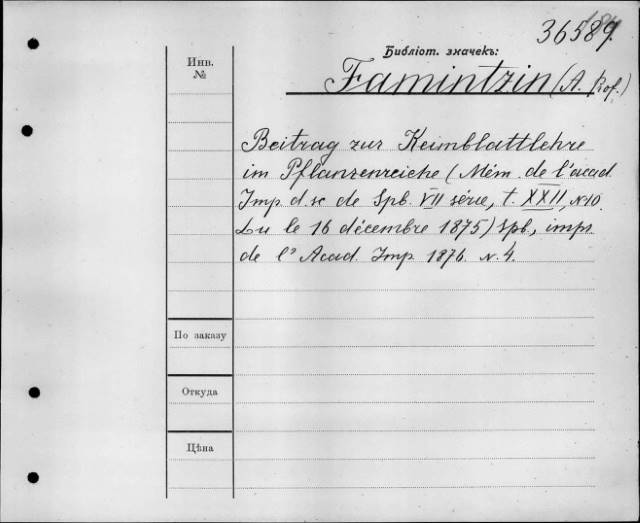 36589.
Библіот. значекъ:
Инв.
№
Famintzin (A. Prof.)
Beitrag zur Keimblattlehre
im Pflanzenreiche (Mém. de l'acad.
Imp. d. sc. de Spb. VII série, t. XXII, N 10.
Lu le 16 décembre 1875) Spb., impr.
de l'Acad. Imp. 1876. N. 4.
По заказу
Откуда
Цѣна